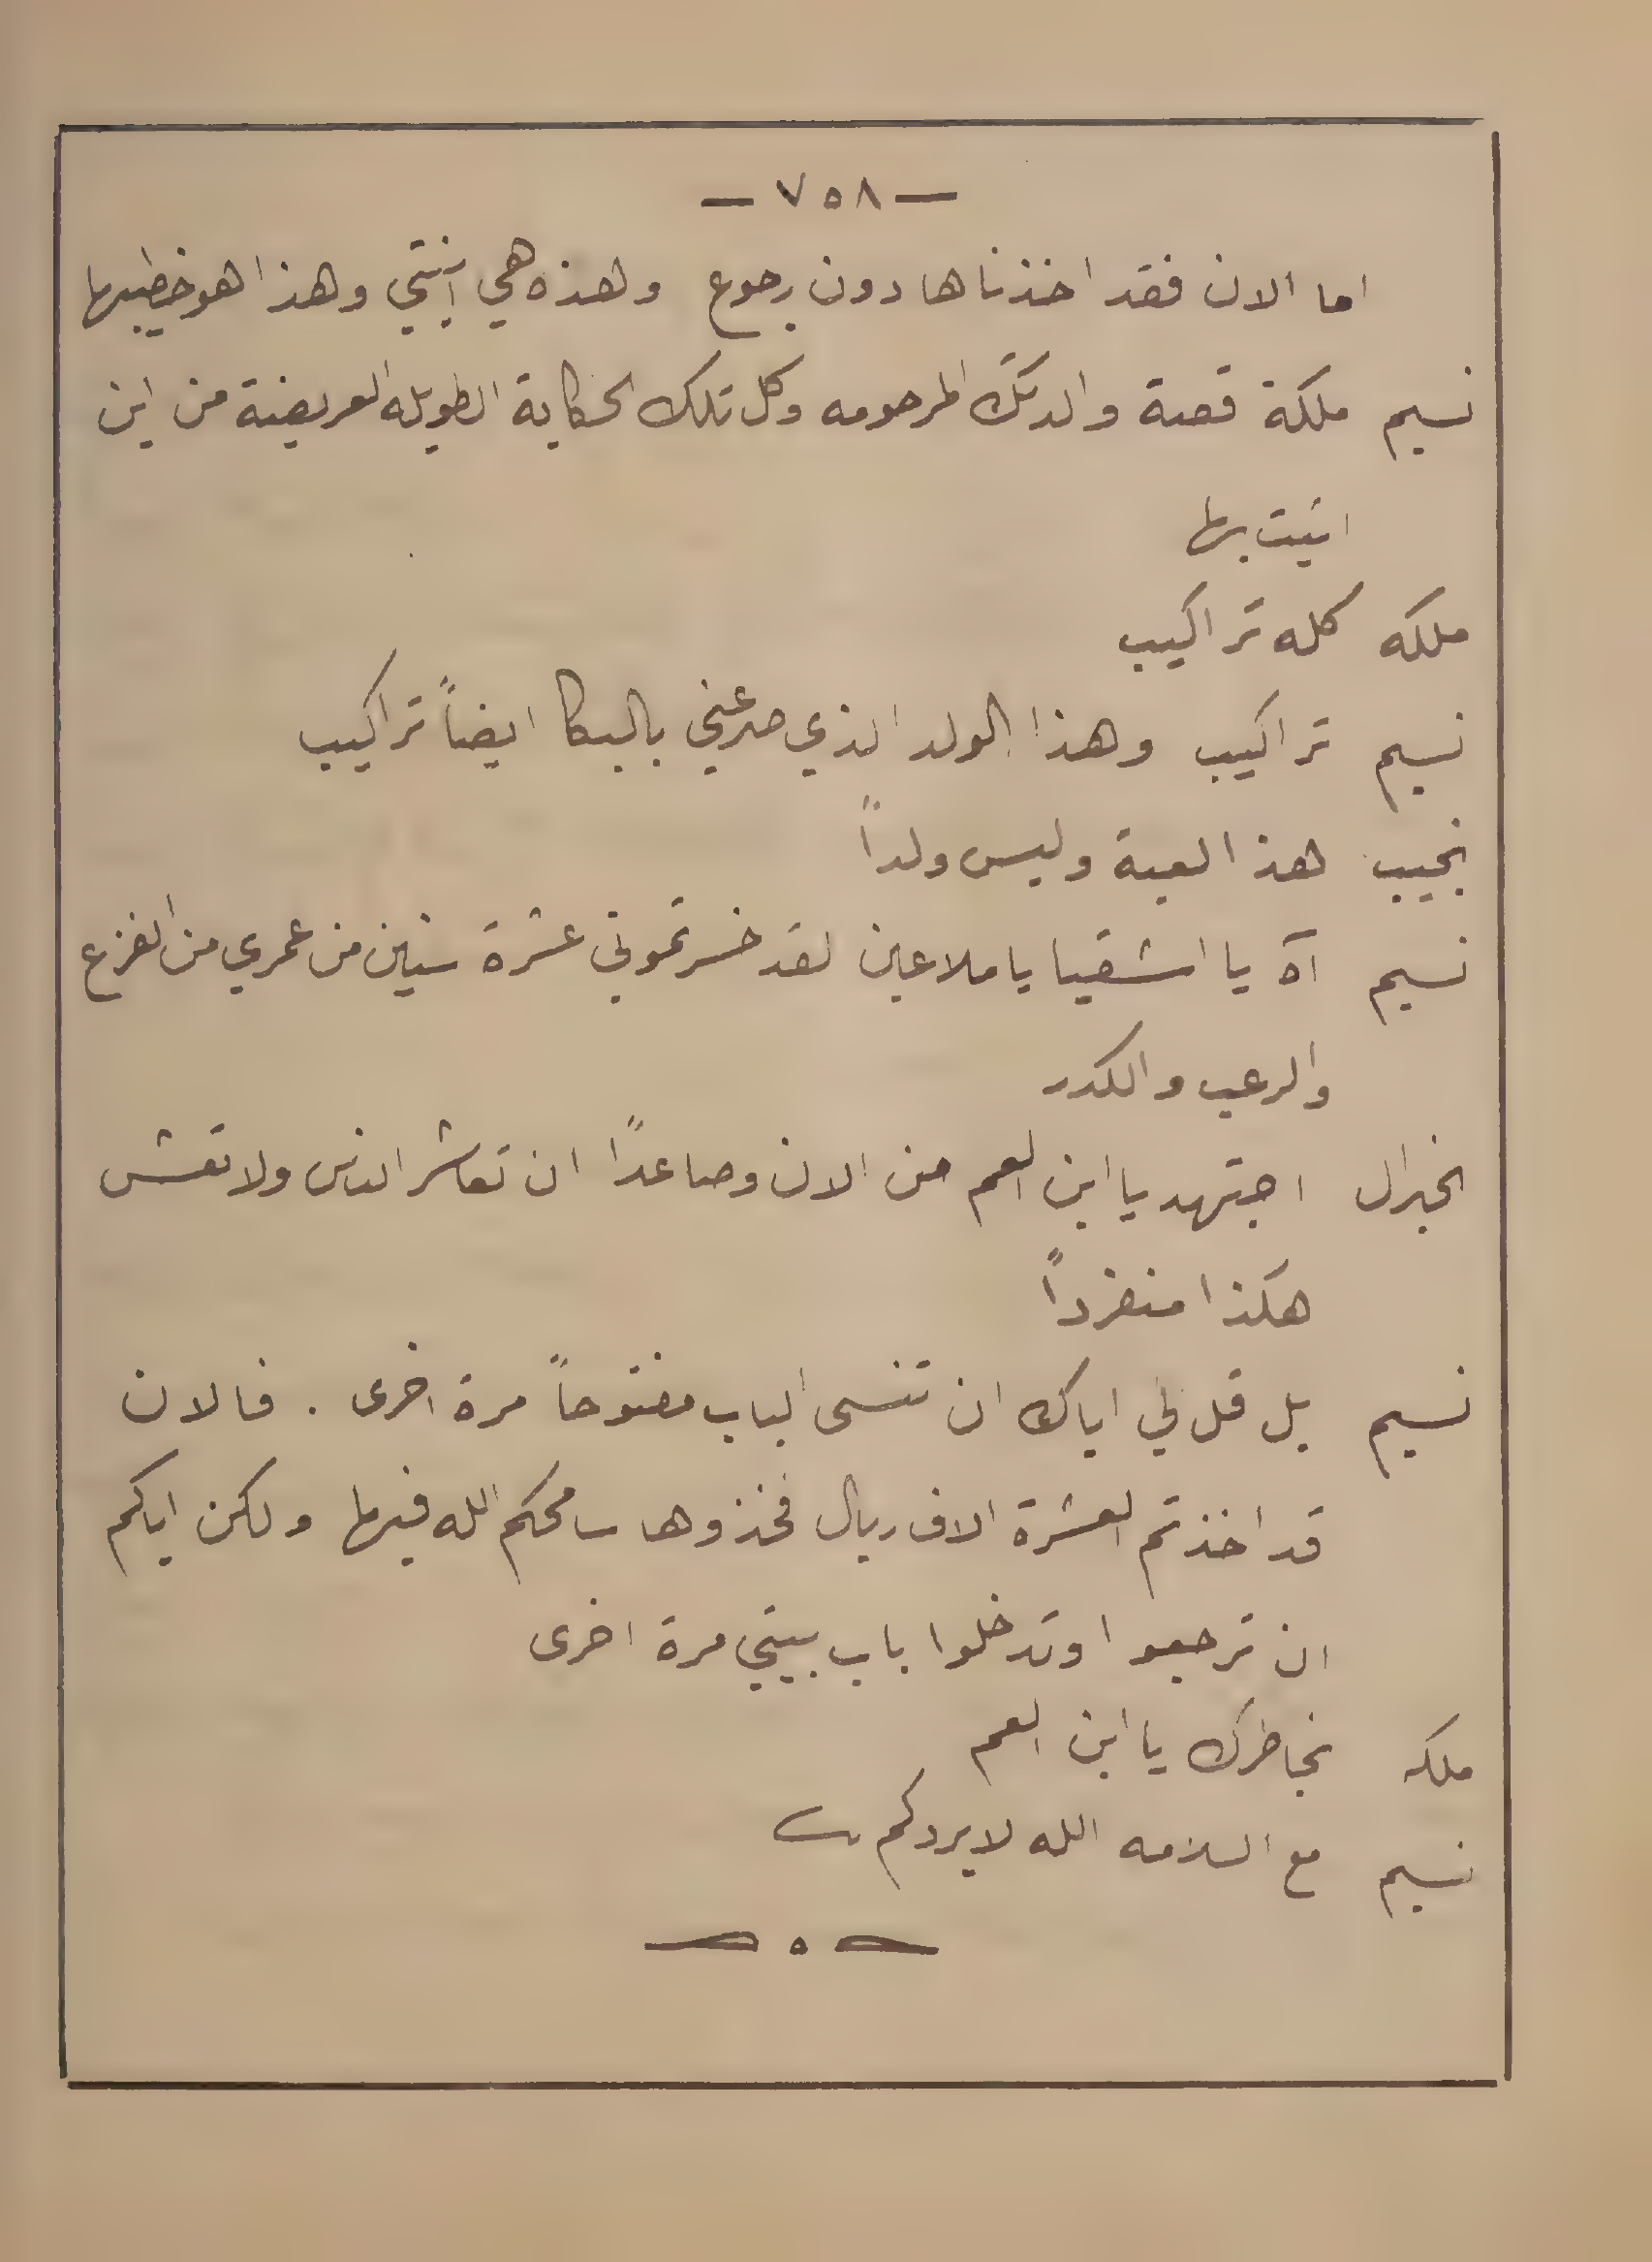 — ٧٥٨ —
اما الان فقد اخذناها دون رجوع وهذه هي إبنتي وهذا هو خطيبها
نسيم ملكة قصة والدتك المرحومه وكل تلك الحكاية الطويله العريضة من اين
اتيت بها
ملكه كله تراكيب
نسيم تراكيب وهذا الولد الذي صرعني بالبكا ايضاً تراكيب
نجيب هذا لعبة وليس ولداً
نسيم آه يا اشقيا يا ملاعين لقد خسرتموني عشرة سنين من عمري من الفزع
والرعب والكدر
الجنرال اجتهد يا ابن العم من الان وصاعدًا ان تعاشر الناس ولا تعش
هكذا منفرداً
نسيم بل قل لي اياك ان تنسى الباب مفتوحاً مرة اخرى . فالان
قد اخذتم العشرة الاف ريال فخذوها سامحكم الله فيها ولكن اياكم
ان ترجعوا وتدخلوا باب بيتي مرة اخرى
ملكه بخاطرك يا ابن العم
نسيم مع السلامه الله لا يردكم